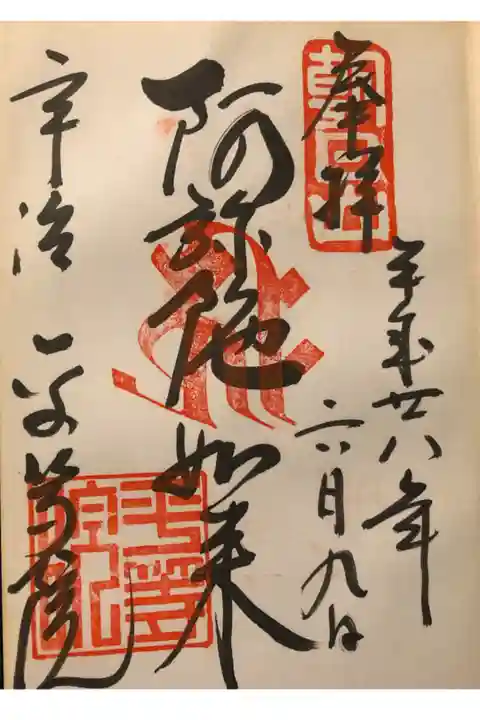 奉拝
平成廿八年
六月九日
阿弥陀如来
宇治 平等院
平等院印